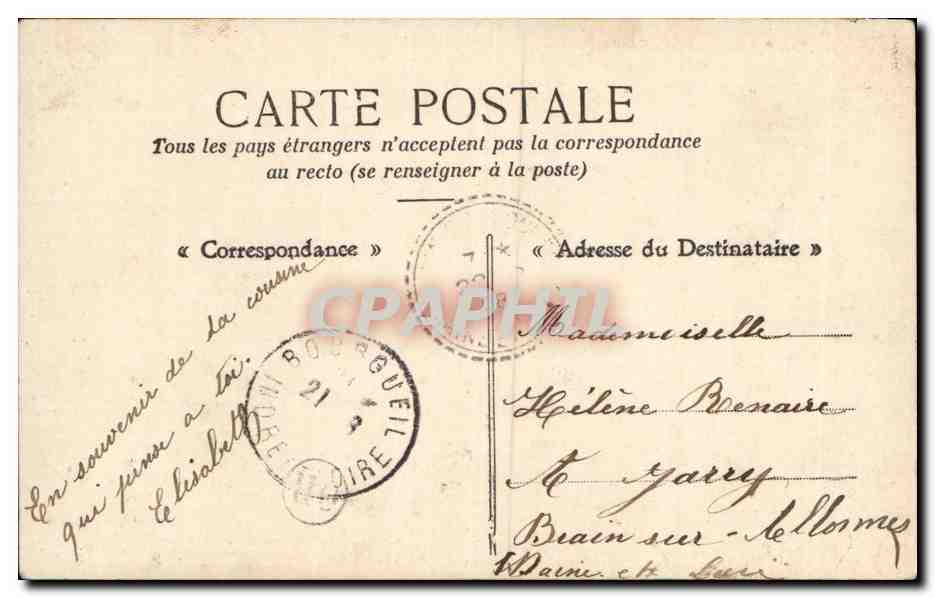 CARTE POSTALE
Tous les pays étrangers n'acceptent pas la correspondance
au recto (se renseigner à la poste)
« Correspondance »
« Adresse du Destinataire »
En souvenir de ta cousine
qui pense a toi.
Elisabeth
BOURGUEIL
21
INDRE ET LOIRE
CPAPHIL
Mademoiselle
Hélène Renaire
A Jarry
Brain sur Allonnes
Maine et Loire